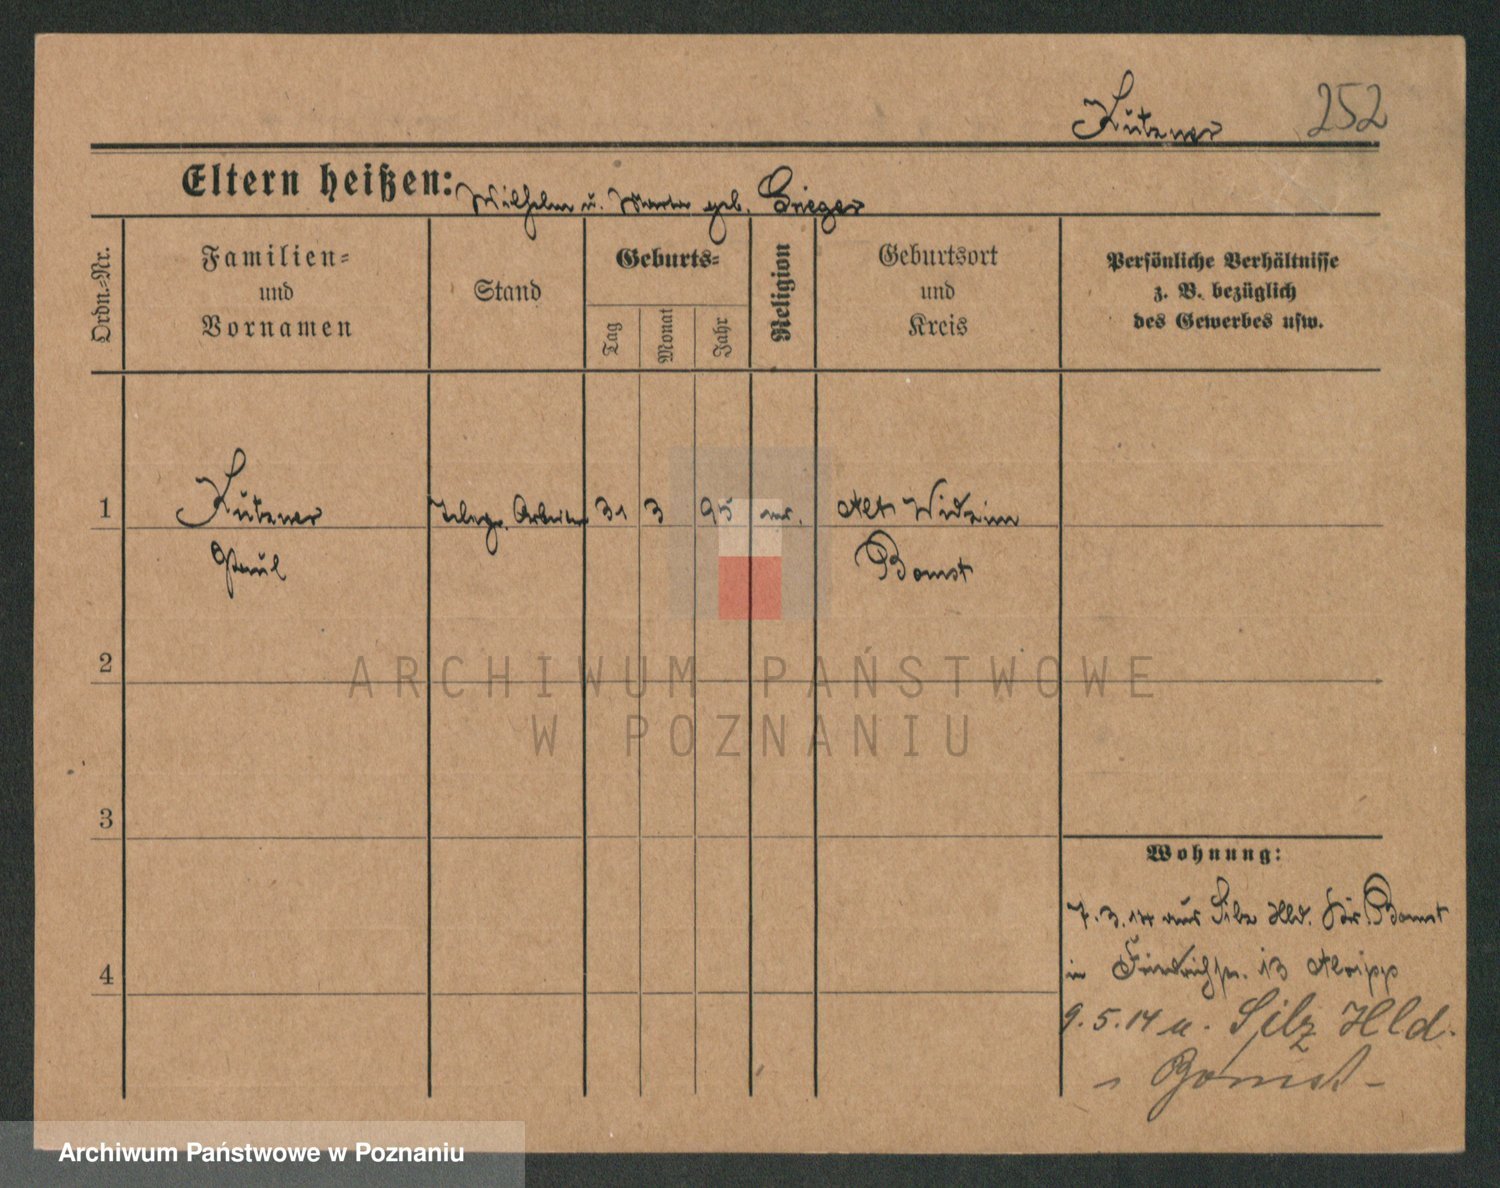 Kutzner 252
Eltern heißen: Wilhelm u. Maria geb. Krieger
Ordn.-Nr.
Familien-
und
Vornamen
Stand
Geburts-
Tag
Monat
Jahr
Religion
Geburtsort
und
Kreis
Persönliche Verhältnisse
z. B. bezüglich
des Gewerbes usw.
1 Kutzner Telegr. Arbeiter 31 3 95 Alt Widzim
Paul Bomst
2
3
4
Wohnung:
7.3.14 aus Silz Hld. Kr. Bomst
in Friedrichstr. 13
9.5.14 n. Silz Hld.
Bomst
ARCHIWUM PAŃSTWOWE
W POZNANIU
Archiwum Państwowe w Poznaniu